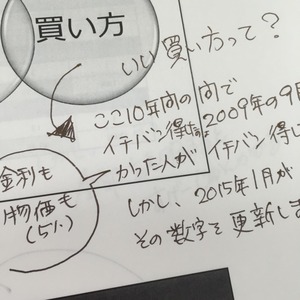 買い方
いい買い方って？
ここ10年間の間で
イチバン得
2009年の9月
かった人が
イチバン得し
金利も
物価も
(5%)
しかし、2015年1月が
その数字を更新しま